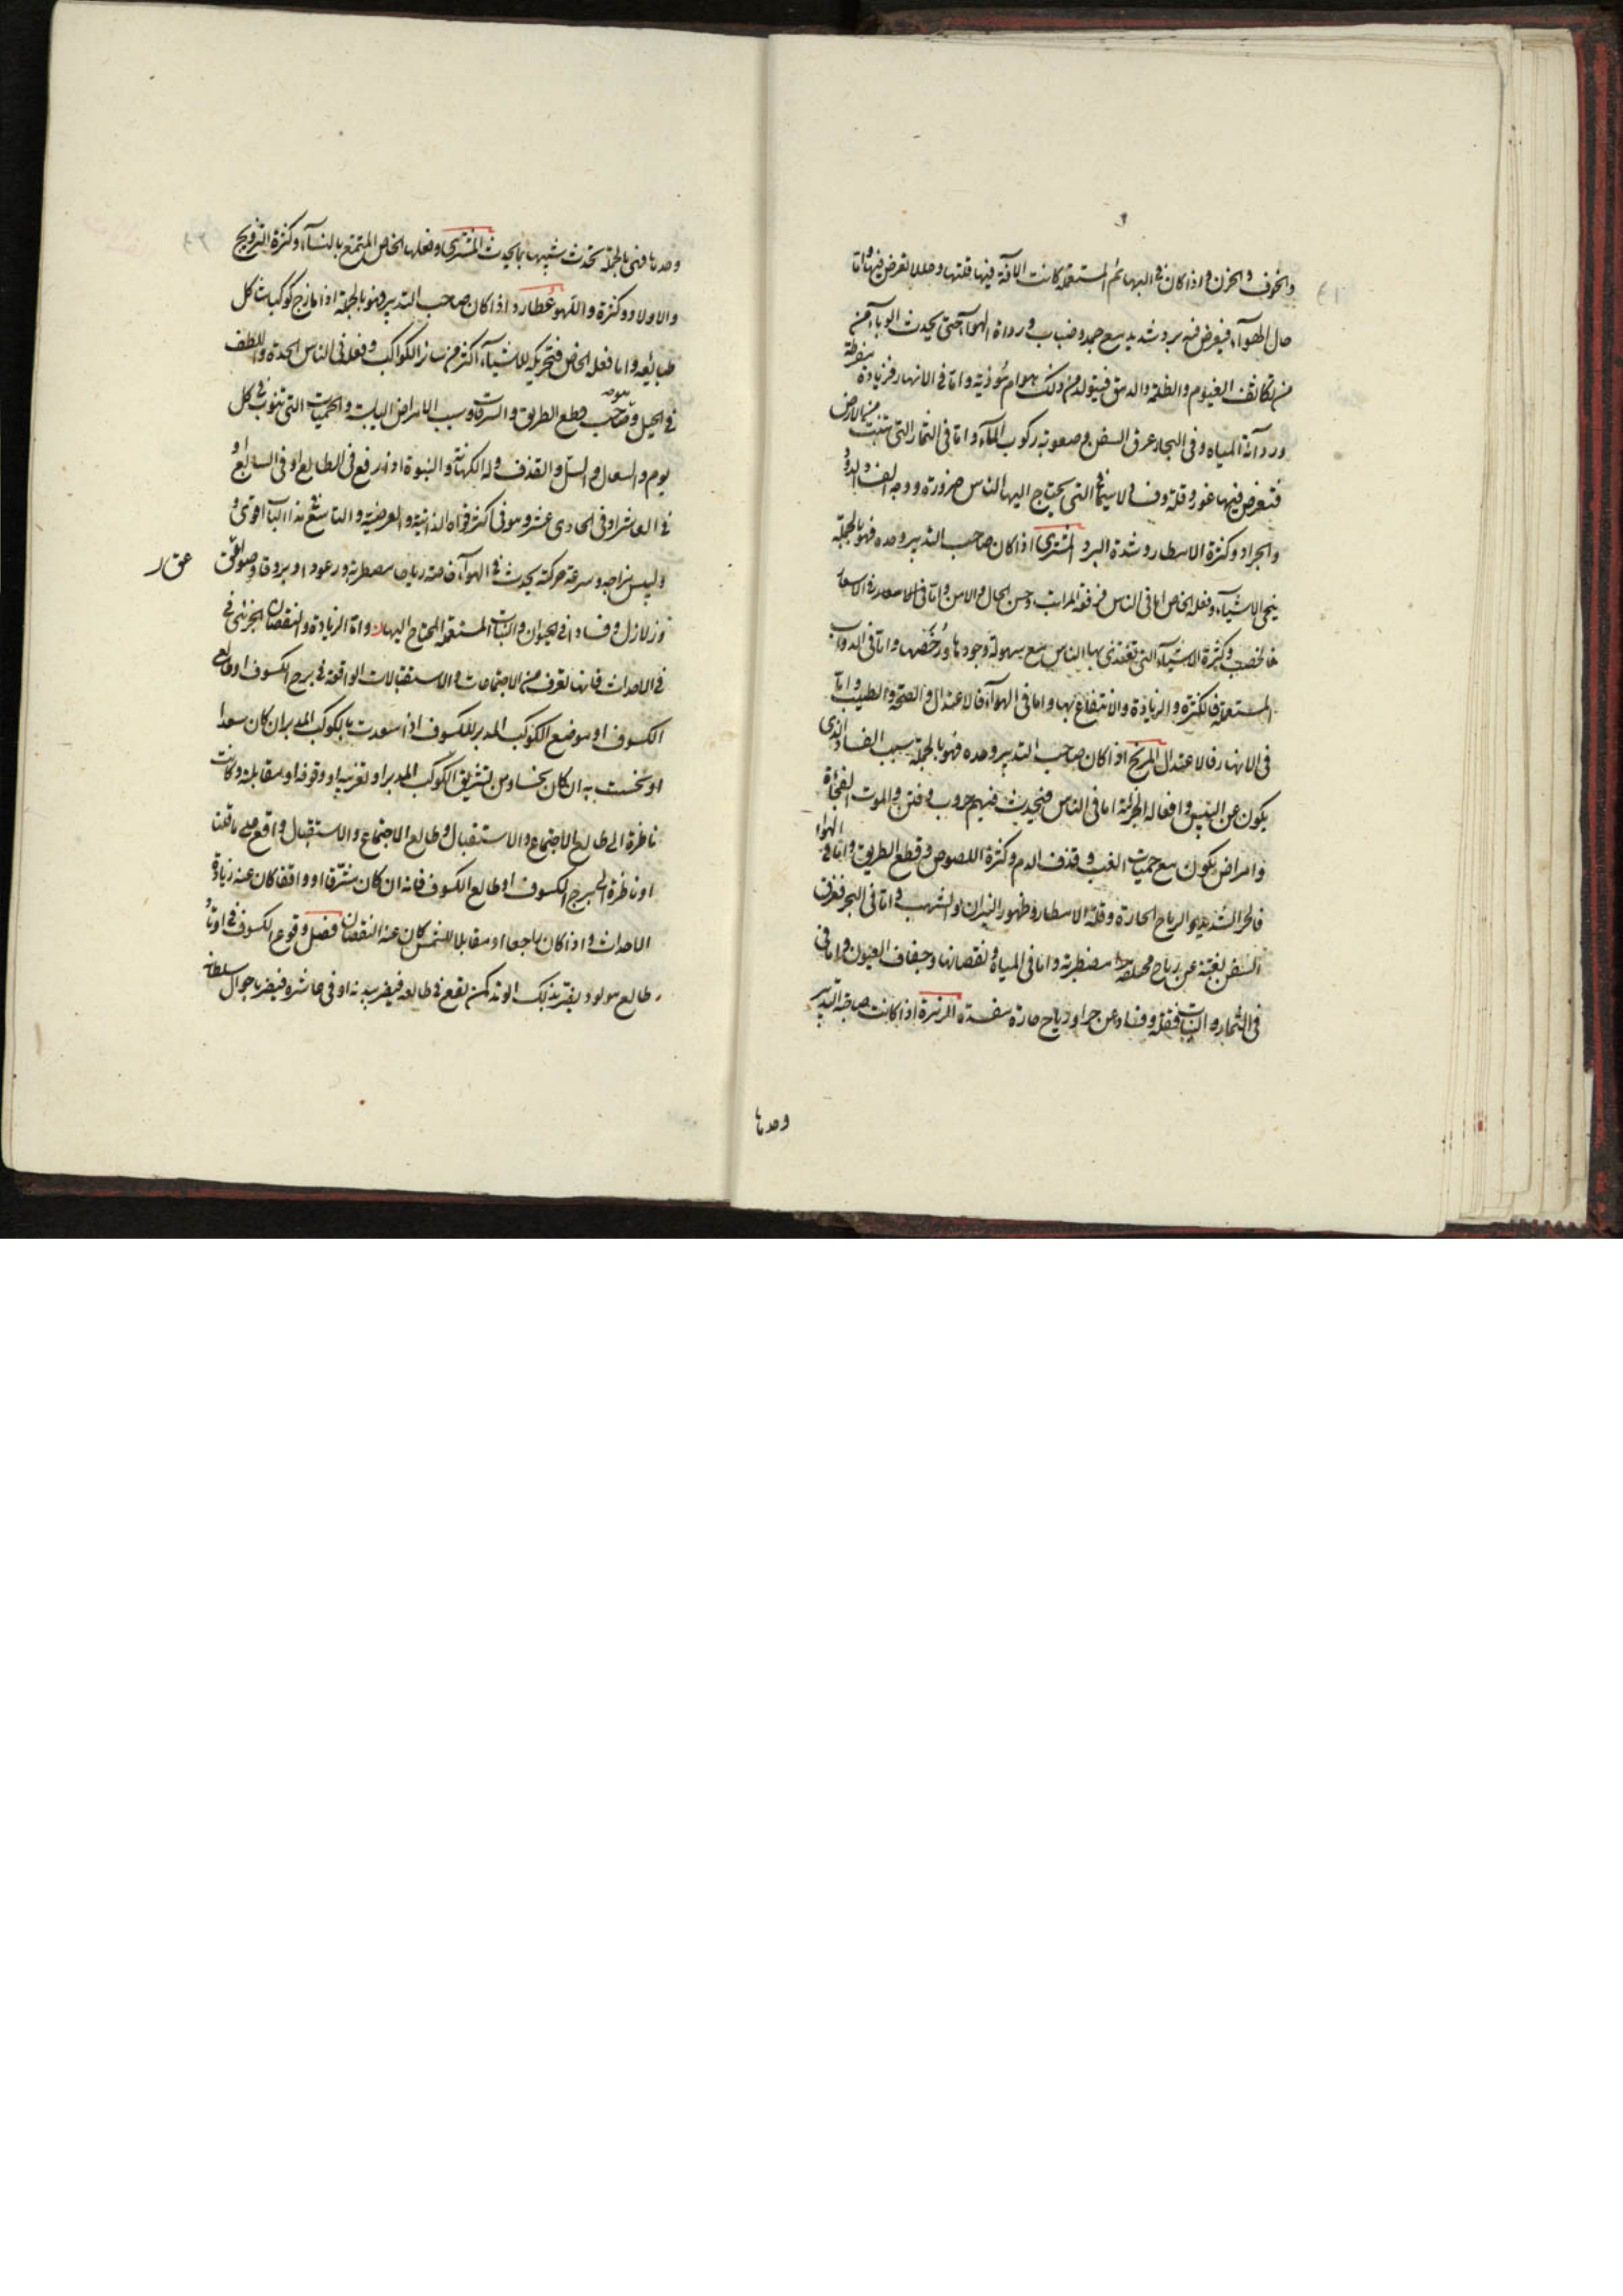 والخوف والحزن واذا كان فى البهائم المستعملة كانت الآفة فيها قلتها وعللا تعرض فيها واما
حال الهوآء فيعرض فيه برد شديد مع جمد وضباب ورداة الهوآء حتى يحدث الوبآء من
من تكاثف الغيوم والظلمة والدمق فيتولد من ذلك هوام مؤذية واما فى الانهار فزيادة مفرطة
ورد آئة المياه وفى البحار غرق السفن وصعوبة ركوب المآء واما فى الثمار التى تنبت من الارض
فتعرض فيها عور وقلة وفساد لا سيما فى التى يحتاج اليها الناس ضرورة ووجه الفساد الدود
والجراد وكثرة الامطار وشدة البرد المشترى اذا كان صاحب التدبير وحده فهو بالجملة
ينمى الاشيآء وفعله الخاص اما فى الناس فرفعة المراتب وحسن الحال والامن واما فى الاسعار
فالخصب وكثرة الاشيآء التى تغتذى بها الناس مع سهولة وجودها ورخصها واما فى الدواب
المستعملة فالكثرة والزيادة والانتفاع بها واما فى الهوآء فالاعتدال والصحة والطيب واما
فى الانهار فالاعتدال المريخ اذا كان صاحب التدبير وحده فهو بالجملة سبب الفساد الذى
يكون عن اليبس وافعاله الجزئية اما فى الناس فيحدث فيهم حروب وفتن والموت الفجأة
وامراض يكون مع حميات الغب وقذف الدم وكثرة اللصوص وقطع الطريق واما فى الهوا
فالحر الشديد والرياح الحارة وقلة الامطار وظهور النيران والشهب واما فى البحر فغرق
السفن بغتة عن رياح مضطربة واما فى المياه ونقصانها وجفاف العيون واما فى
فى الثمار والنبات فقلة وفساد عن جراد ورياح حارة مفسدة الزهرة اذا كانت صاحبة التدبير
وحدها
وحدها فهى بالجملة تحدث شبيها بما يحدث المشترى وفعلها الخاص المتمتع بالنسآء وكثرة التزويج
والاولاد وكثرة واللهو عطارد اذا كان صاحب التدبير وهو بالجملة اذا مازج كوكبا شاكل
طبائعه واما فعله الخاص فتحريكه للاشيآء اكثر من سائر الكواكب وفعله فى الناس الحدة واللطف
فى الحيل وصاحب قطع الطريق والسرقات وسبب الامراض اليابسة والحميات التى تنوب فى كل
يوم والسعال والسل والقذف وله الكهانة والنبوة اذا وقع فى الطالع او فى السابع او
فى العاشر او فى الحادى عشر وهو فى اكثر قواه الذاتية والعرضية والتاسع فى هذا الباب اقوى و
وليبس مزاجه وسرعة حركته يحدث فى الهوآء خاصة رياحا مضطربة ورعودا وبروقا وصواعق
وزلازل وفسادا فى الحيوان والنبات المستعملة المحتاج اليها واما الزيادة والنقصان الجزئى فى
فى الاحداث فانها تعرف من الاجتماعات والاستقبالات الواقعة فى برج الكسوف او طالع
الكسوف او موضع الكوكب المدبر للكسوف اذا سعدت بالكوكب المدبر ان كان سعدا
او نحست به ان كان نحسا ومن تشريق الكوكب المدبر او تغريبه او وقوفه او مقابلته وكانت
ناظرة الى طالع الاجتماع والاستقبال وطالع الاجتماع والاستقبال واقع على ما قلنا
او ناظرة الى برج الكسوف او طالع الكسوف فانه ان كان مشرقا او واقفا كان عنه زيادة
الاحداث واذا كان راجعا او مقابلا للشمس كان عنه النقصان فصل وقوع الكسوف فى اوتاد
طالع مولود يضر بذلك الوتد كمن يقع فى طالعه فيضر ببدنه او فى عاشره فيضر باحوال سلطانه